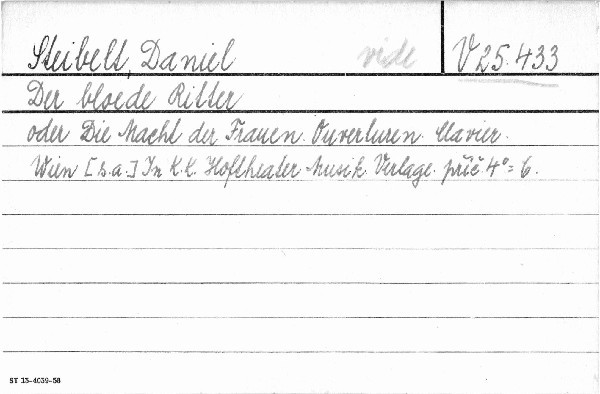 Steibelt, Daniel vide V 25.433
Der bloede Ritter
oder Die Macht der Frauen. Ouverturen. Clavier.
Wien [s.a.] In K.K. Hoftheater-Musik. Verlage. příč. 4° = 6.
ST 13-4039-58